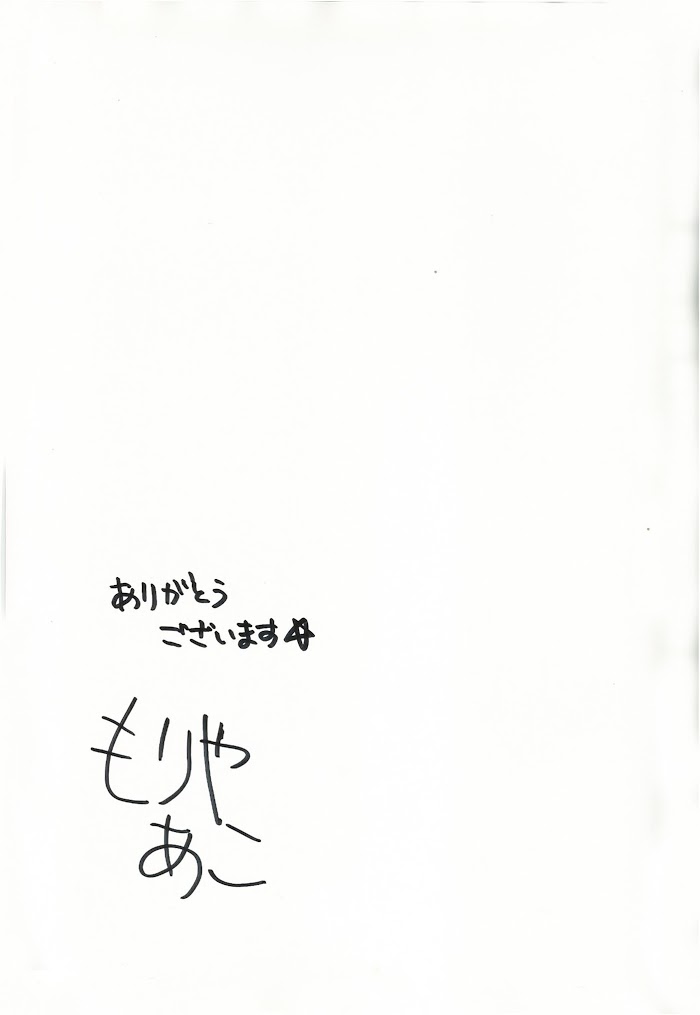 ありがとう
ございます☆
もりや
あこ